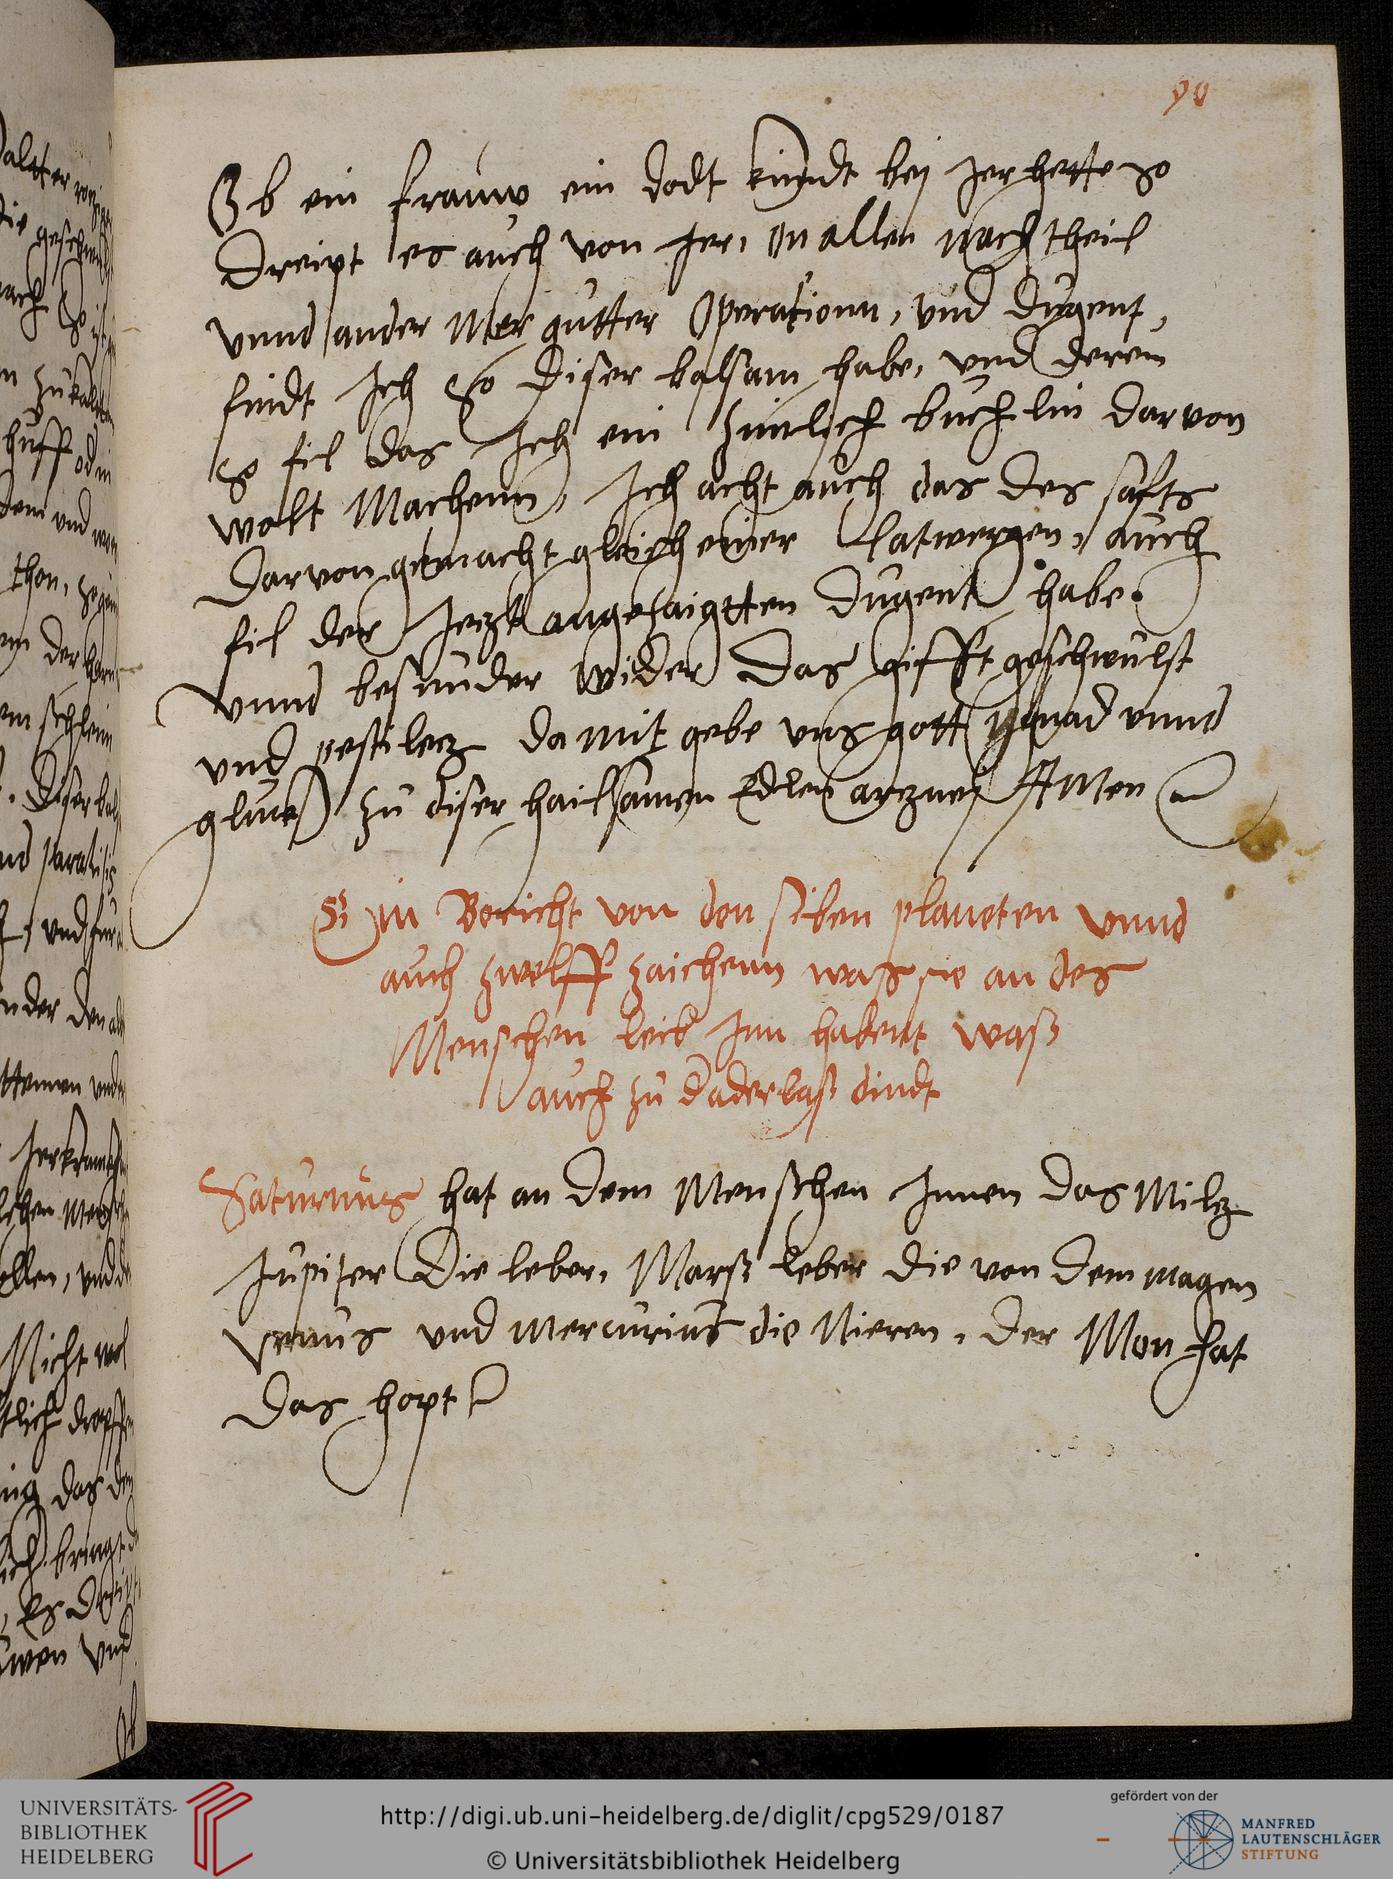 90
Ob ein frauw ein dodt kindt bej Jer hette so
Dreipt es auch von Jer, on allen nachtheil
vnnd ander Mer gutter Operationn, vnd dugent,
findt Ich so diser balsam habe, vnd deren
so fil das Ich ein zimlich buchlin darvon
wolt Machenn, Ich acht auch das des safts
darvon gemacht gleich einer Latwergen, auch
fil der Jezt angezaigtten dugent habe.
vnnd besunder wider das gifft geschwulst
vnd pestilentz da mit gebe vns gott gnad vnnd
gluck zu diser hailsamen Edlen arznej AMen
Ein Bericht von den siben planeten vnnd
auch zwelff zaichenn was sie an des
Menschen leib Jnn habent waß
auch zu daderlaß dindt
Saturnus hat an dem Menschen Innen das Miltz
Jupiter die leber, Marß leber die von dem magen
venus vnd Mercurius die Nieren, der Mon hat
das hopt
UNIVERSITÄTS-
BIBLIOTHEK
HEIDELBERG
http://digi.ub.uni-heidelberg.de/diglit/cpg529/0187
© Universitätsbibliothek Heidelberg
gefördert von der
MANFRED
LAUTENSCHLÄGER
STIFTUNG